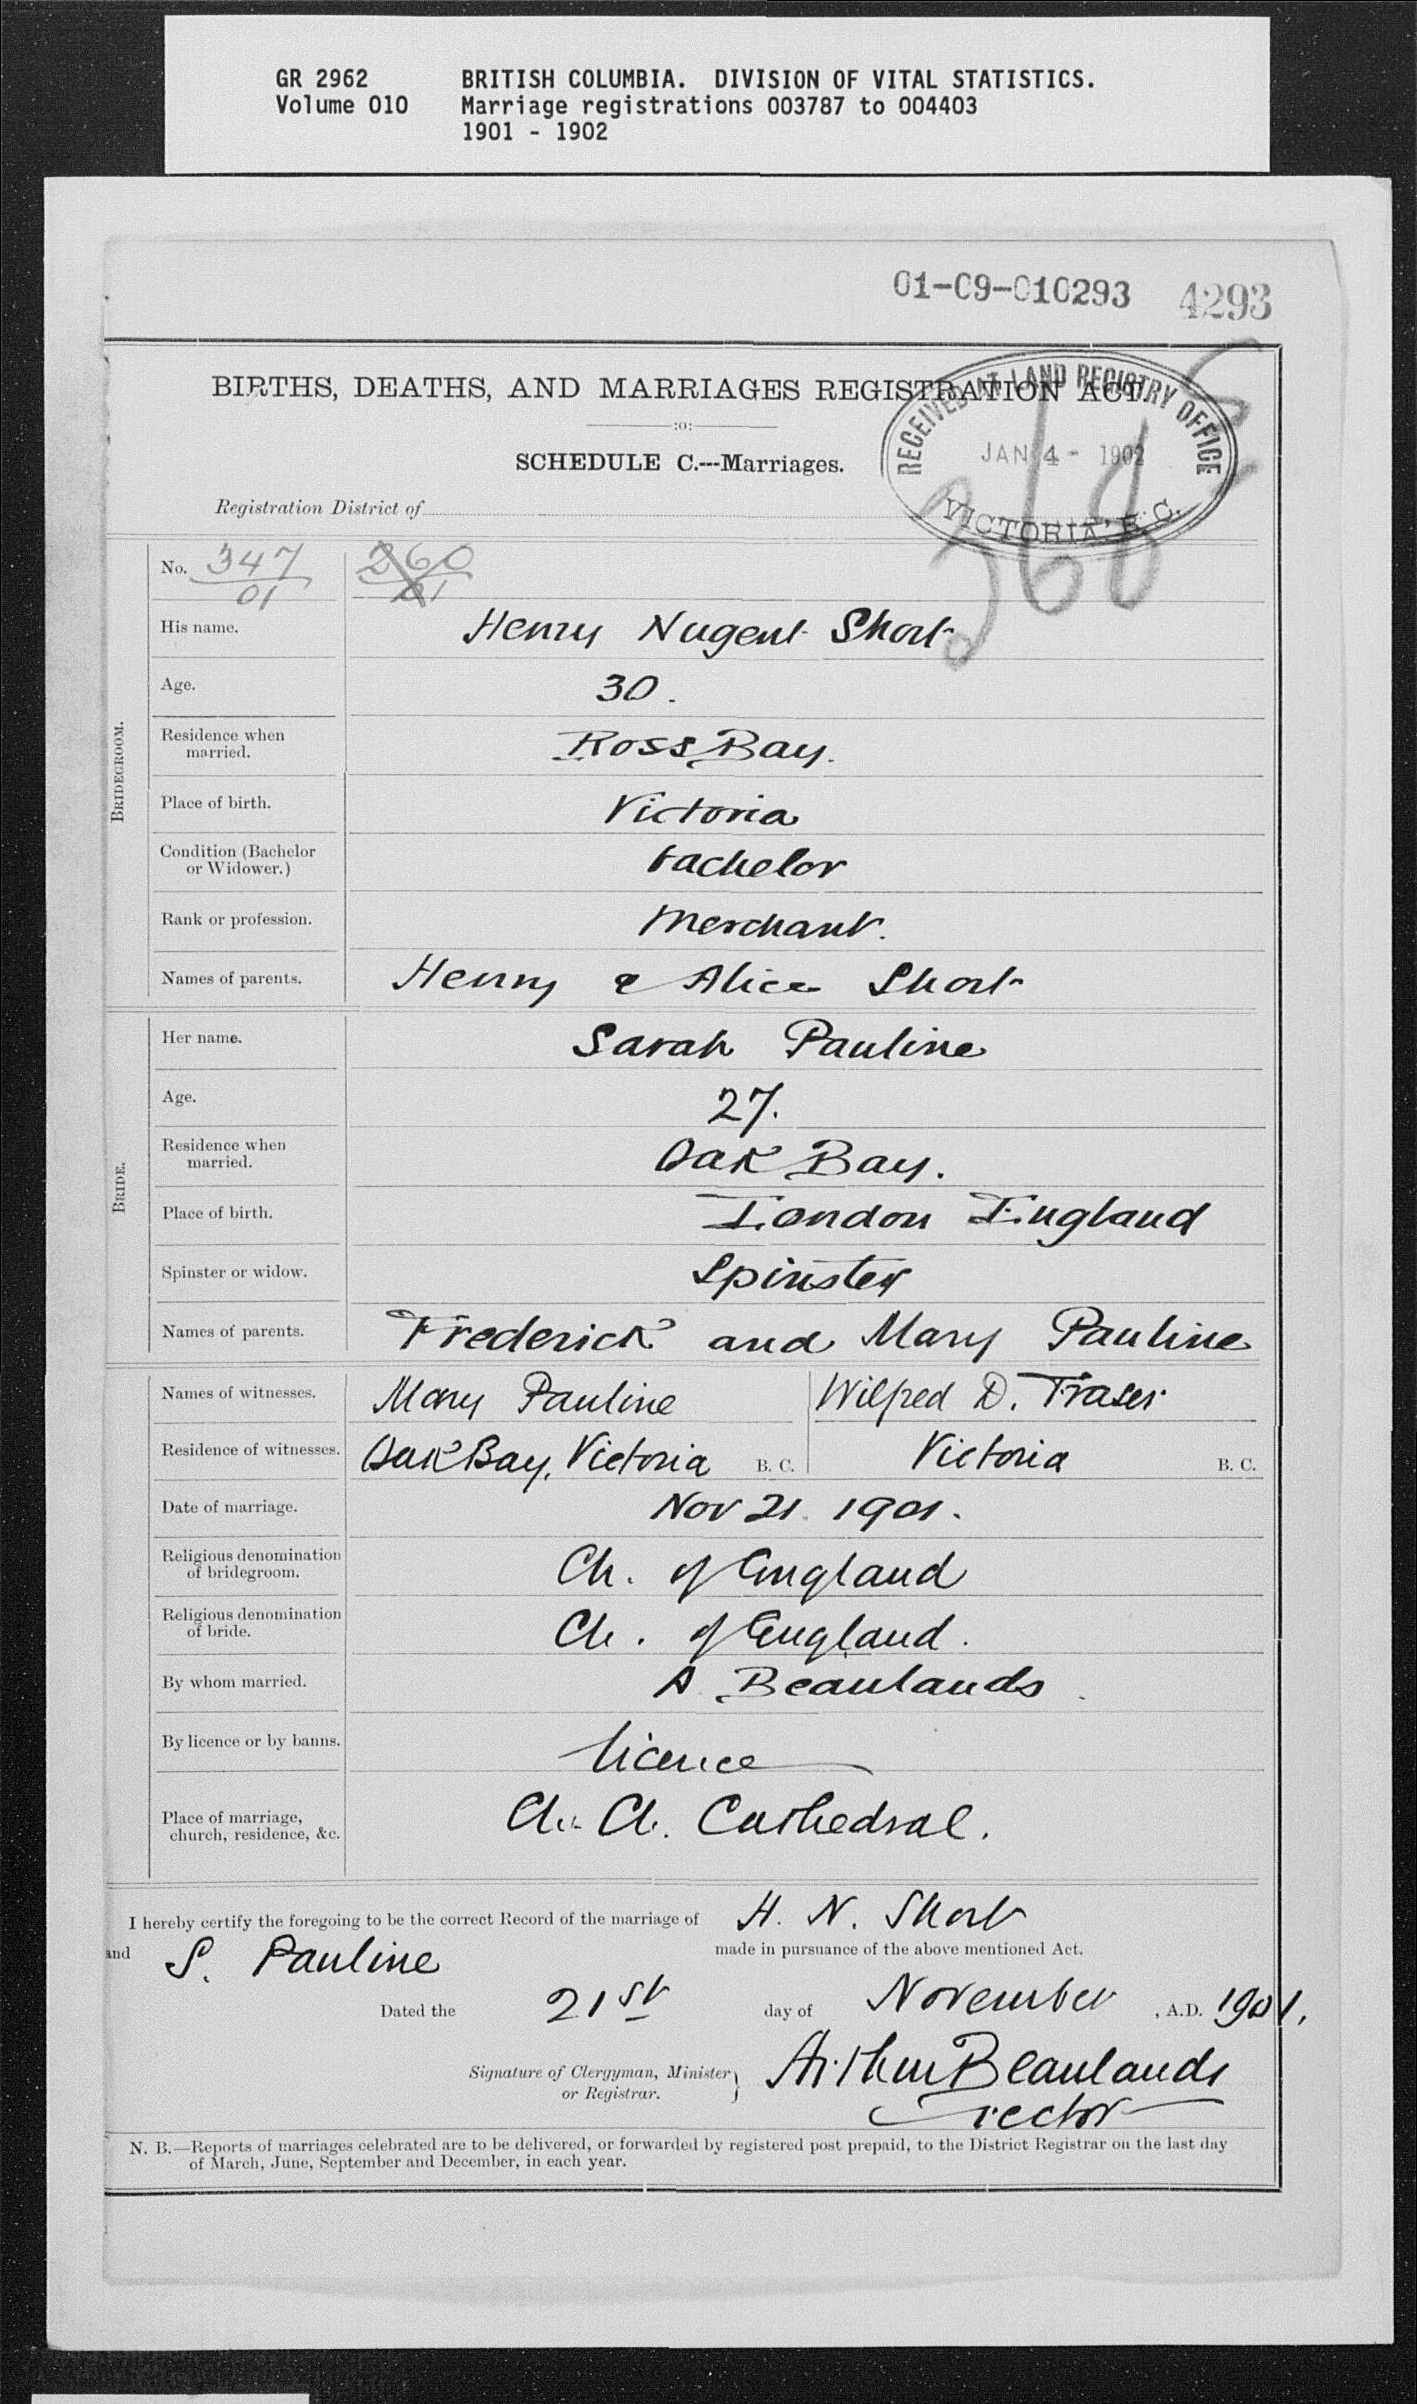 GR 2962 BRITISH COLUMBIA. DIVISION OF VITAL STATISTICS.
Volume 010 Marriage registrations 003787 to 004403
1901 - 1902
01-09-010293 4293
BIRTHS, DEATHS, AND MARRIAGES REGISTRATION ACT.
:o:
RECEIVED AT LAND REGISTRY OFFICE
JAN 4 - 1902
VICTORIA, B.C.
SCHEDULE C.---Marriages.
Registration District of
No. 347/01 260/01
BRIDEGROOM.
His name. Henry Nugent Short
Age. 30.
Residence when married. Ross Bay.
Place of birth. Victoria
Condition (Bachelor or Widower.) bachelor
Rank or profession. Merchant.
Names of parents. Henry & Alice Short
BRIDE.
Her name. Sarah Pauline
Age. 27.
Residence when married. Oak Bay.
Place of birth. London England
Spinster or widow. Spinster
Names of parents. Frederick and Mary Pauline
Names of witnesses. Mary Pauline Wilfred D. Fraser
Residence of witnesses. Oak Bay, Victoria B. C. Victoria B. C.
Date of marriage. Nov 21. 1901.
Religious denomination of bridegroom. Ch. of England
Religious denomination of bride. Ch. of England.
By whom married. A Beanlands
By licence or by banns. licence
Place of marriage, church, residence, &c. Ch. Ch. Cathedral.
I hereby certify the foregoing to be the correct Record of the marriage of H. N. Short
and S. Pauline made in pursuance of the above mentioned Act.
Dated the 21st day of November, A.D. 1901.
Signature of Clergyman, Minister or Registrar. Arthur Beanlands
rector
N. B.—Reports of marriages celebrated are to be delivered, or forwarded by registered post prepaid, to the District Registrar on the last day
of March, June, September and December, in each year.